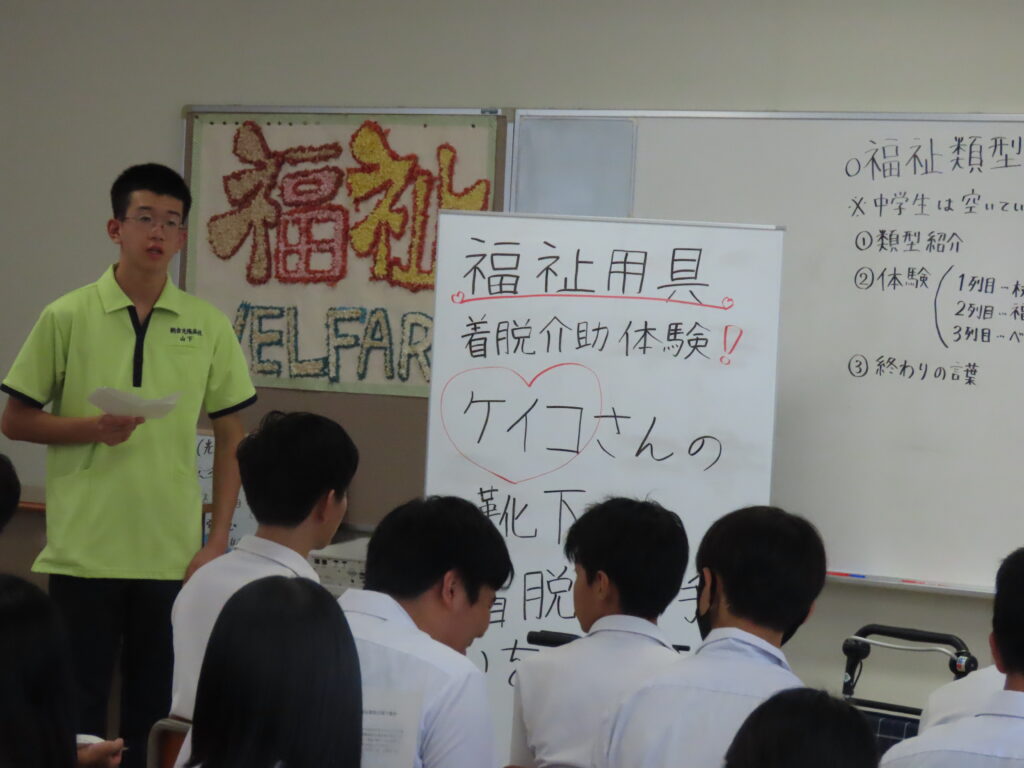 福祉
WELFAR
山下
福祉用具
着脱介助体験!
ケイコさんの
靴下
着脱
○福祉類型
※中学生は空いてい
①類型紹介
②体験
1列目…
2列目…福
3列目…ベ
③終わりの言葉